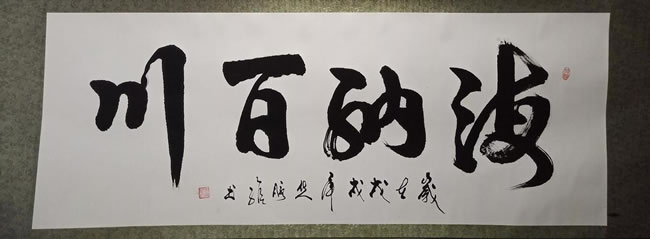 海納百川
歲在戊戌年